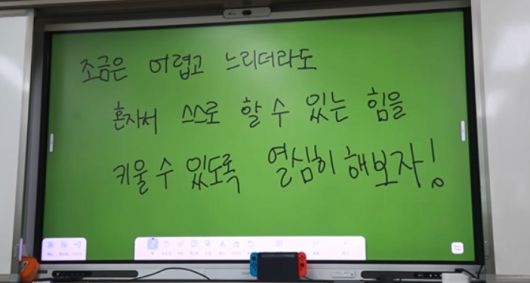 조금은 어렵고 느리더라도
혼자서 스스로 할 수 있는 힘을
키울 수 있도록 열심히 해보자!